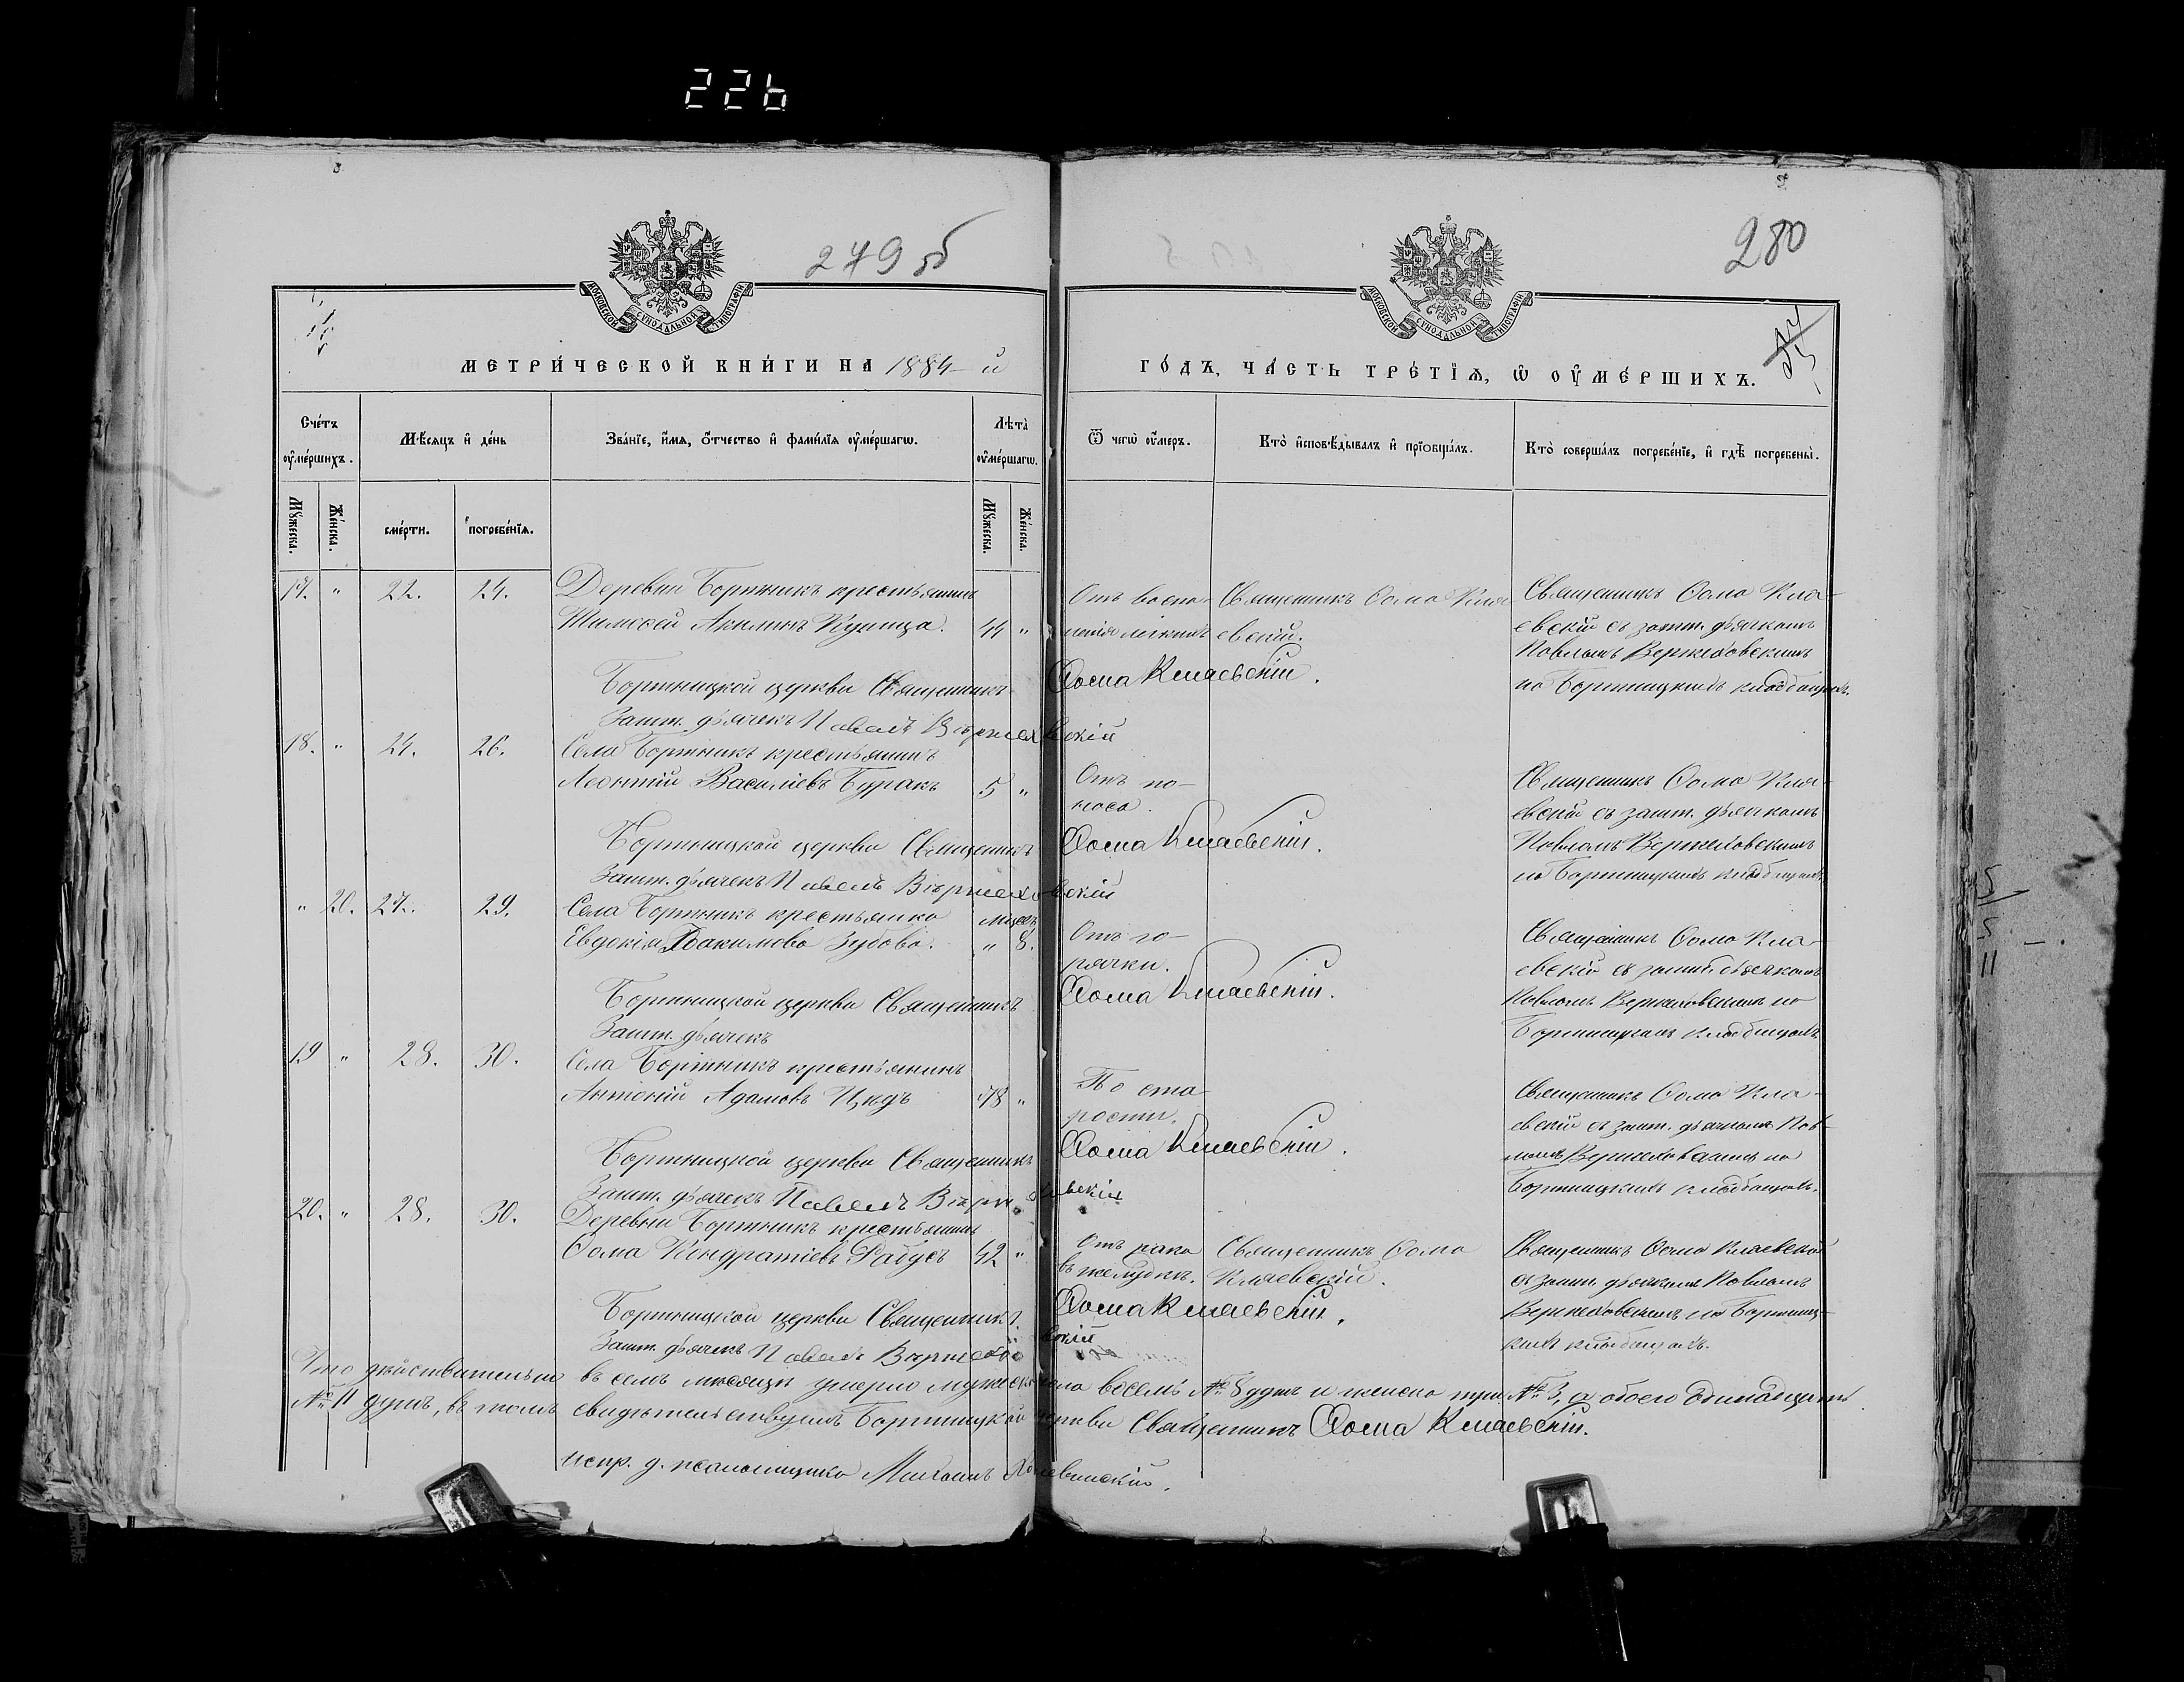 226
279 об
280
МОСКОВСКОЙ СѴНОДАЛЬНОЙ ТИПОГРАФІИ
МОСКОВСКОЙ СѴНОДАЛЬНОЙ ТИПОГРАФІИ
МЕТРИ́ЧЕСКОЙ КНИ́ГИ НА 1884-й
ГО́ДЪ, ЧА́СТЬ ТРЕ́ТІѦ, Ѡ҆ ОУ҆МЕ́РШИХЪ.
Сче́тъ оу҆ме́ршихъ.
Мѣ́сяцъ и҆ де́нь
Зва́нїе, и҆́мя, ѻ҆́тчество и҆ фами́лїя оу҆ме́ршагѡ.
Лѣта̀ оу҆ме́ршагѡ.
Ѿ чегѡ̀ оу҆́меръ.
Кто̀ и҆сповѣ́дывалъ и҆ прїѻбща́лъ.
Кто̀ соверша́лъ погребе́нїе, и҆ гдѣ̀ погребены̀.
Мꙋ́жеска.
Же́нска.
сме́рти.
погребе́нїя.
Мꙋ́жеска.
Же́нска.
17. " 22. 24. Деревни Бортникъ крестьянинъ
Тимофей Акилинъ Курица. 44 "
Отъ воспаленія легкихъ
Священникъ Ѳома Кляевскій.
Священникъ Ѳома Кляевскій съ зашт. дьячкомъ
Павломъ Вержеховскимъ
на Бортницкомъ кладбищѣ.
Бортницкой церкви Священникъ Ѳома Кляевскій.
Зашт. дьячекъ Павелъ Вержеховскій
18. " 24. 26. Села Бортникъ крестьянинъ
Леонтій Василіевъ Буракъ 5 "
Отъ поноса.
Священникъ Ѳома Кляевскій съ зашт. дьячкомъ
Павломъ Вержеховскимъ
на Бортницкомъ кладбищѣ.
Бортницкой церкви Священникъ Ѳома Кляевскій.
Зашт. дьячекъ Павелъ Вержеховскій
" 20. 27. 29. Села Бортникъ крестьянка
Евдокія Іоакимова Зубова. " 8.
Отъ горячки.
Священникъ Ѳома Кляевскій съ зашт. дьячкомъ
Павломъ Вержеховскимъ на
Бортницкомъ кладбищѣ.
Бортницкой церкви Священникъ Ѳома Кляевскій.
Зашт. дьячекъ
19 " 28. 30. Села Бортникъ крестьянинъ
Антоній Адамовъ 78 "
По старости.
Священникъ Ѳома Кляевскій съ зашт. дьячкомъ Павломъ Вержеховскимъ на
Бортницкомъ кладбищѣ.
Бортницкой церкви Священникъ Ѳома Кляевскій.
Зашт. дьячекъ Павелъ Вержеховскій
20. " 28. 30. Деревни Бортникъ крестьянинъ
Ѳома Кондратіевъ Бабусъ 42 "
Отъ рака въ желудкѣ.
Священникъ Ѳома Кляевскій.
Священникъ Ѳома Кляевскій
съ зашт. дьячкомъ Павломъ
Вержеховскимъ на Бортницкомъ кладбищѣ.
Бортницкой церкви Священникъ Ѳома Кляевскій.
Зашт. дьячекъ Павелъ Вержеховскій
Что дѣйствительно въ семъ мѣсяцѣ умерло мужеска пола восемь № 8 душъ и женска три № 3, а обоего одинадцать
№ 11 душъ, въ томъ свидѣтельствуемъ Бортницкой церкви Священникъ Ѳома Кляевскій.
испр. д. псаломщика